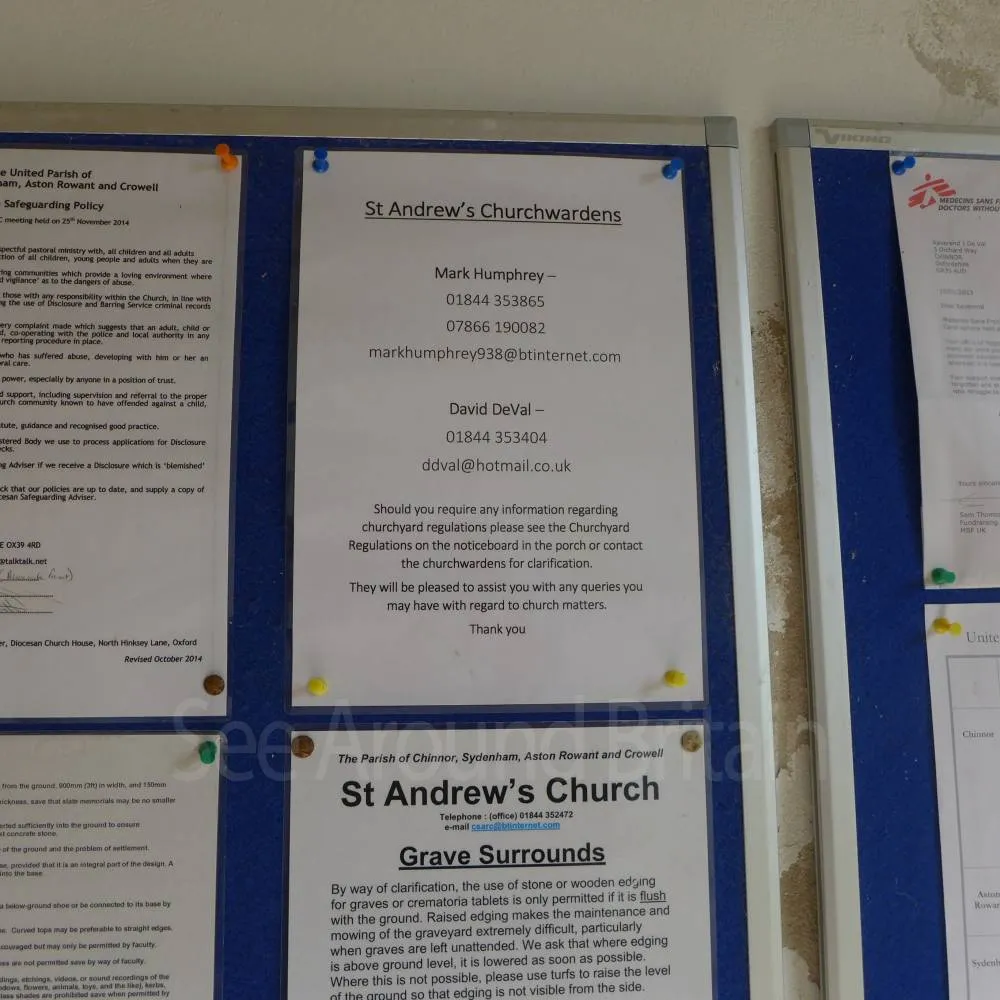 e United Parish of
am, Aston Rowant and Crowell
Safeguarding Policy
C meeting held on 25th November 2014
spectful pastoral ministry with, all children and all adults
ction of all children, young people and adults when they are
ring communities which provide a loving environment where
d vigilance' as to the dangers of abuse.
those with any responsibility within the Church, in line with
ng the use of Disclosure and Barring Service criminal records
ery complaint made which suggests that an adult, child or
d, co-operating with the police and local authority in any
reporting procedure in place.
who has suffered abuse, developing with him or her an
oral care.
power, especially by anyone in a position of trust.
d support, including supervision and referral to the proper
urch community known to have offended against a child,
tute, guidance and recognised good practice.
stered Body we use to process applications for Disclosure
cks.
ng Adviser if we receive a Disclosure which is 'blemished'
ck that our policies are up to date, and supply a copy of
cesan Safeguarding Adviser.
E OX39 4RD
@talktalk.net
er, Diocesan Church House, North Hinksey Lane, Oxford
Revised October 2014
St Andrew's Churchwardens
Mark Humphrey –
01844 353865
07866 190082
markhumphrey938@btinternet.com
David DeVal –
01844 353404
ddval@hotmail.co.uk
Should you require any information regarding
churchyard regulations please see the Churchyard
Regulations on the noticeboard in the porch or contact
the churchwardens for clarification.
They will be pleased to assist you with any queries you
may have with regard to church matters.
Thank you
from the ground, 900mm (3ft) in width, and 150mm
hickness, save that slate memorials may be no smaller
erted sufficiently into the ground to ensure
st concrete stone.
of the ground and the problem of settlement.
se, provided that it is an integral part of the design. A
into the base.
a below-ground shoe or be connected to its base by
e. Curved tops may be preferable to straight edges.
couraged but may only be permitted by faculty.
ses are not permitted save by way of faculty.
dings, etchings, videos, or sound recordings of the
dows, flowers, animals, toys, and the like), kerbs,
lass shades are prohibited save when permitted by
The Parish of Chinnor, Sydenham, Aston Rowant and Crowell
St Andrew's Church
Telephone : (office) 01844 352472
e-mail csarc@btinternet.com
Grave Surrounds
By way of clarification, the use of stone or wooden edging
for graves or crematoria tablets is only permitted if it is flush
with the ground. Raised edging makes the maintenance and
mowing of the graveyard extremely difficult, particularly
when graves are left unattended. We ask that where edging
is above ground level, it is lowered as soon as possible.
Where this is not possible, please use turfs to raise the level
of the ground so that edging is not visible from the side.
VIKING
MEDECINS SANS F
DOCTORS WITHOU
Reverend J De Val
3 Orchard Way
CHINNOR
Oxfordshire
Dear Reverend
Yours sincere
Sam Thoms
Fundraising
MSF UK
Unite
Chinnor
Aston
Rowan
Sydenh
See Around Britain